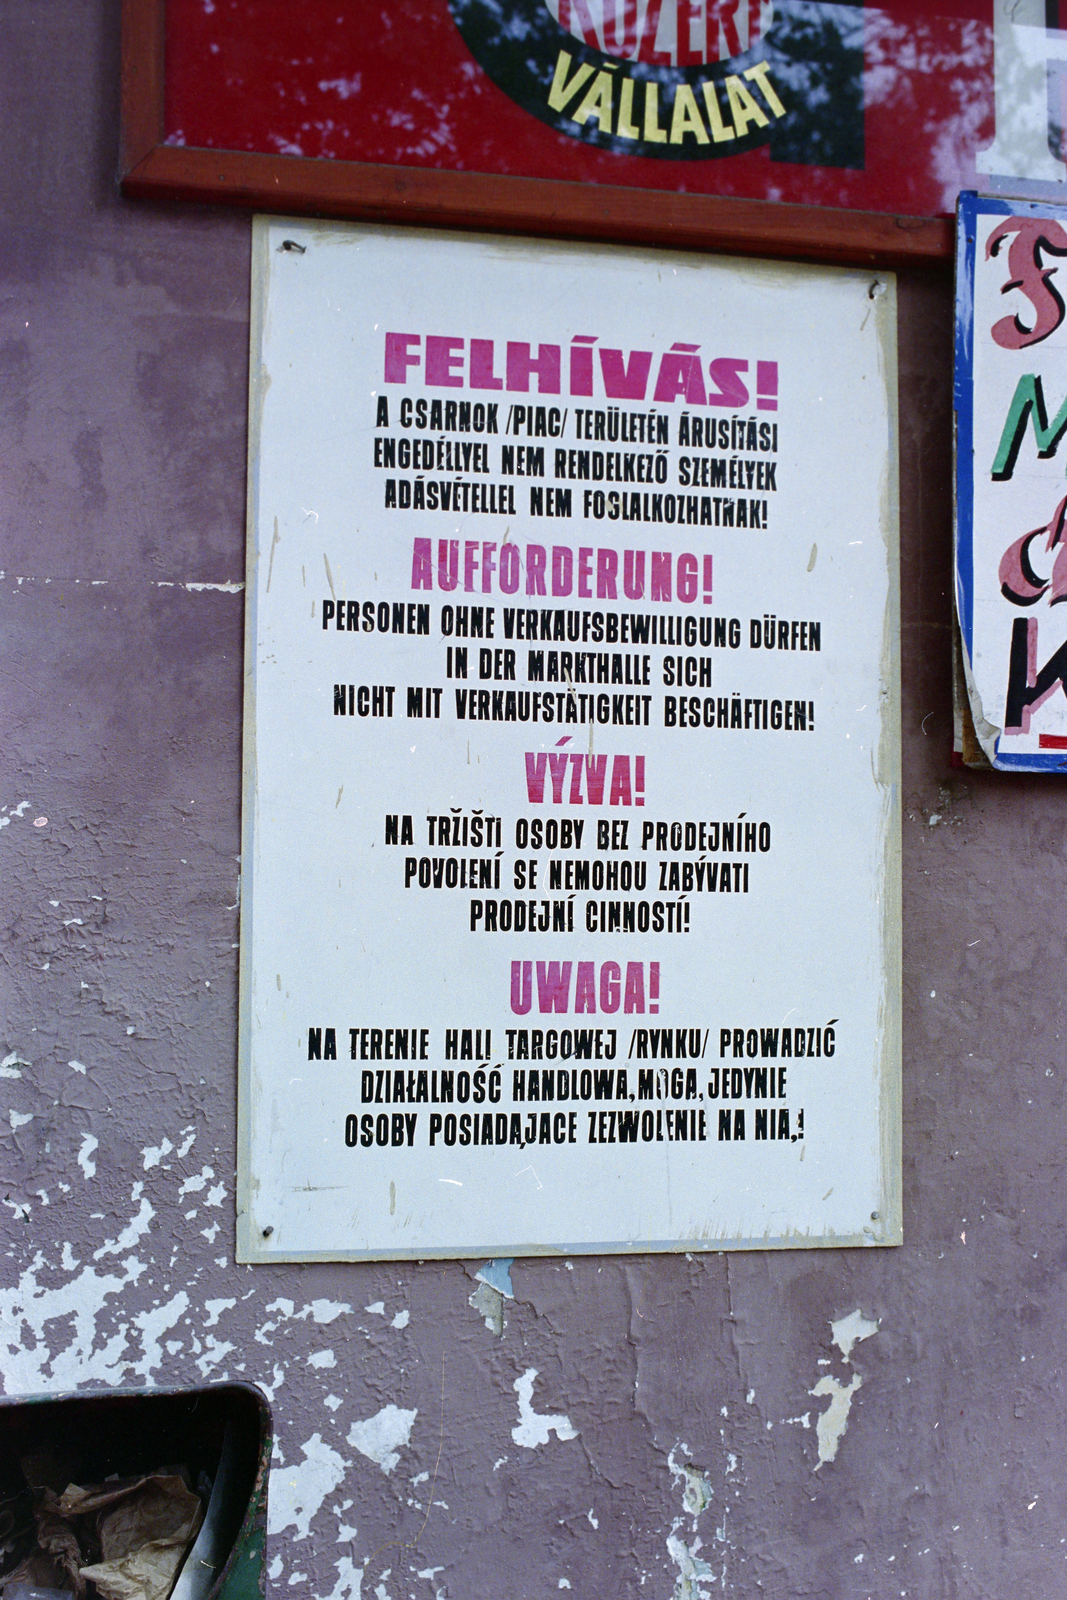 KÖZÉRT
VÁLLALAT
FELHÍVÁS!
A CSARNOK /PIAC/ TERÜLETÉN ÁRUSÍTÁSI
ENGEDÉLLYEL NEM RENDELKEZŐ SZEMÉLYEK
ADÁSVÉTELLEL NEM FOGLALKOZHATNAK!
AUFFORDERUNG!
PERSONEN OHNE VERKAUFSBEWILLIGUNG DÜRFEN
IN DER MARKTHALLE SICH
NICHT MIT VERKAUFSTÄTIGKEIT BESCHÄFTIGEN!
VÝZVA!
NA TRŽIŠTI OSOBY BEZ PRODEJNÍHO
POVOLENÍ SE NEMOHOU ZABÝVATI
PRODEJNÍ CINNOSTÍ!
UWAGA!
NA TERENIE HALI TARGOWEJ /RYNKU/ PROWADZIĆ
DZIAŁALNOŚĆ HANDLOWA, MOGA, JEDYNIE
OSOBY POSIADA,JACE ZEZWOLENIE NA NIA,!